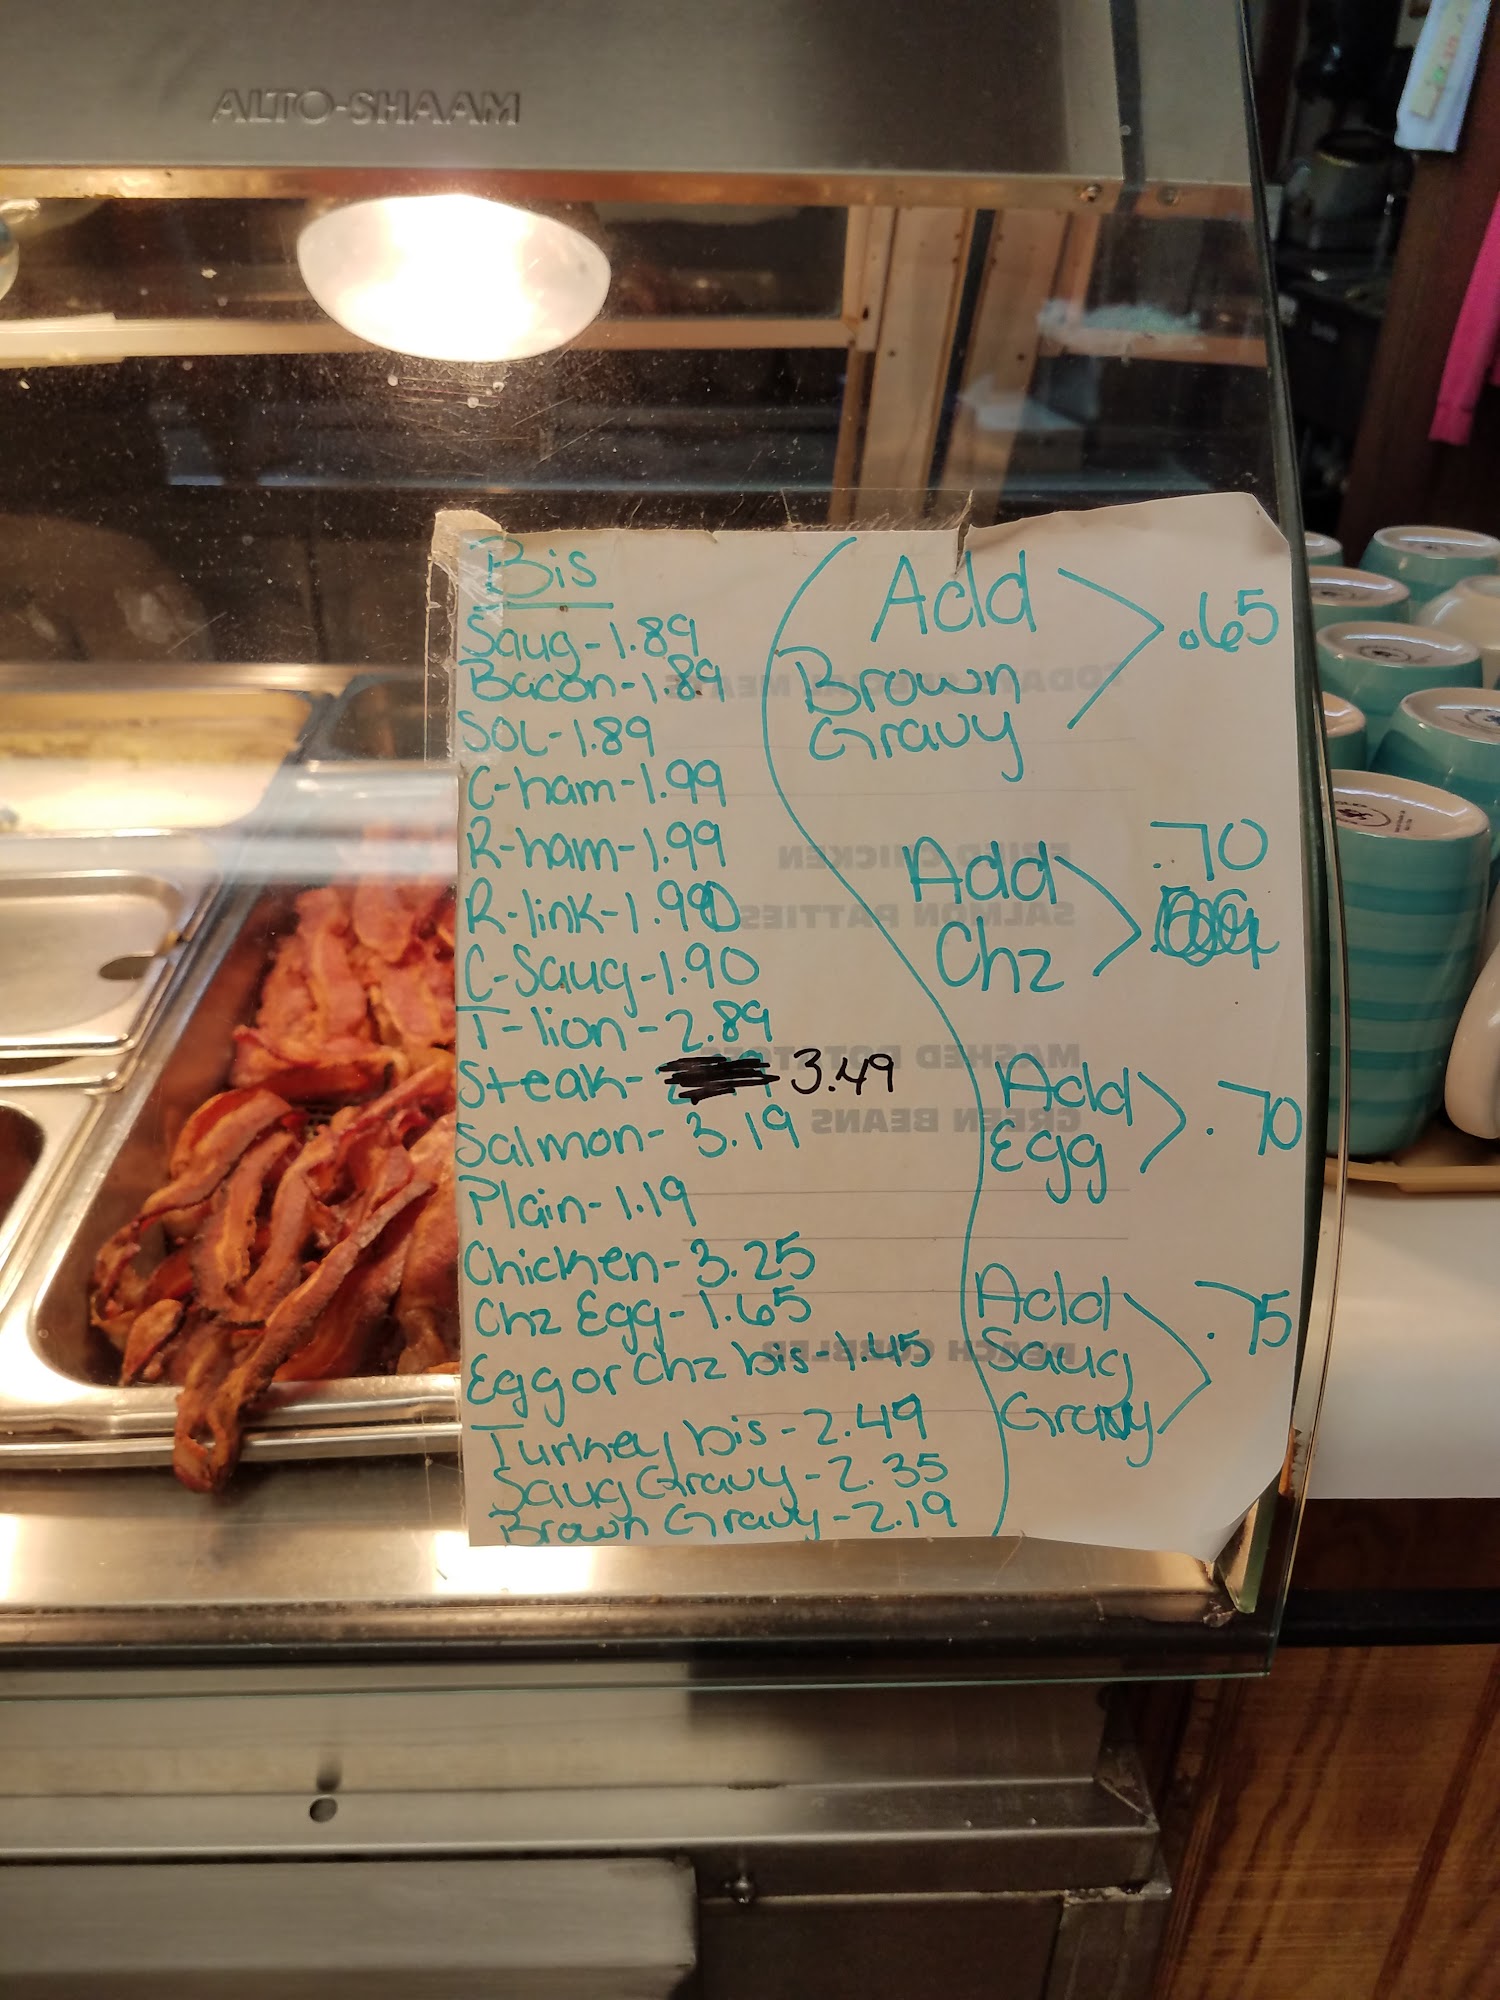 ALTO-SHAAM
Bis
Saug-1.89
Bacon-1.89
SOL-1.89
C-ham-1.99
R-ham-1.99
R-link-1.990
C-Saug-1.90
T-lion-2.89
Steak- 3.49
Salmon- 3.19
Plain-1.19
Chicken-3.25
Chz Egg-1.65
Egg or Chz bis-1.45
Turkey bis-2.49
Saug Gravy-2.35
Brown Gravy-2.19
Add .65
Brown
Gravy
Add .70
Chz
Add .70
Egg
Add .75
Saug
Gravy
FRIED CHICKEN
SALMON PATTIES
MASHED POTATOES
GREEN BEANS
PEACH COBBLER